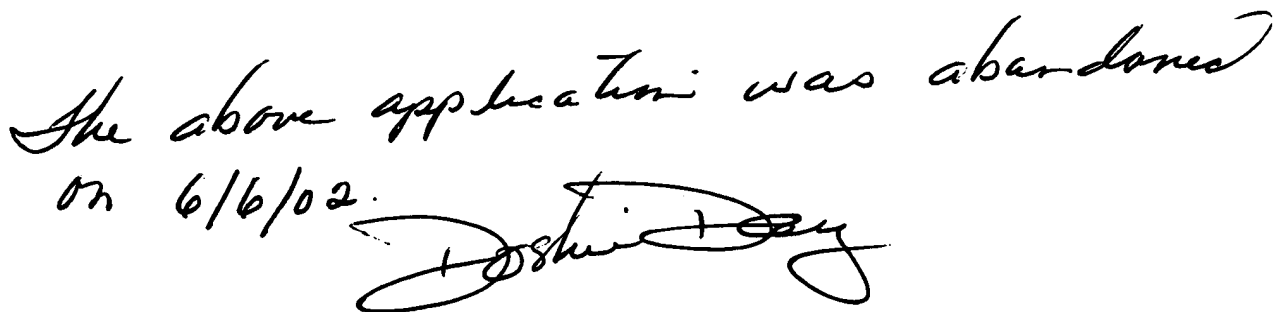 The above application was abandoned
on 6/6/02.
Doshie Day